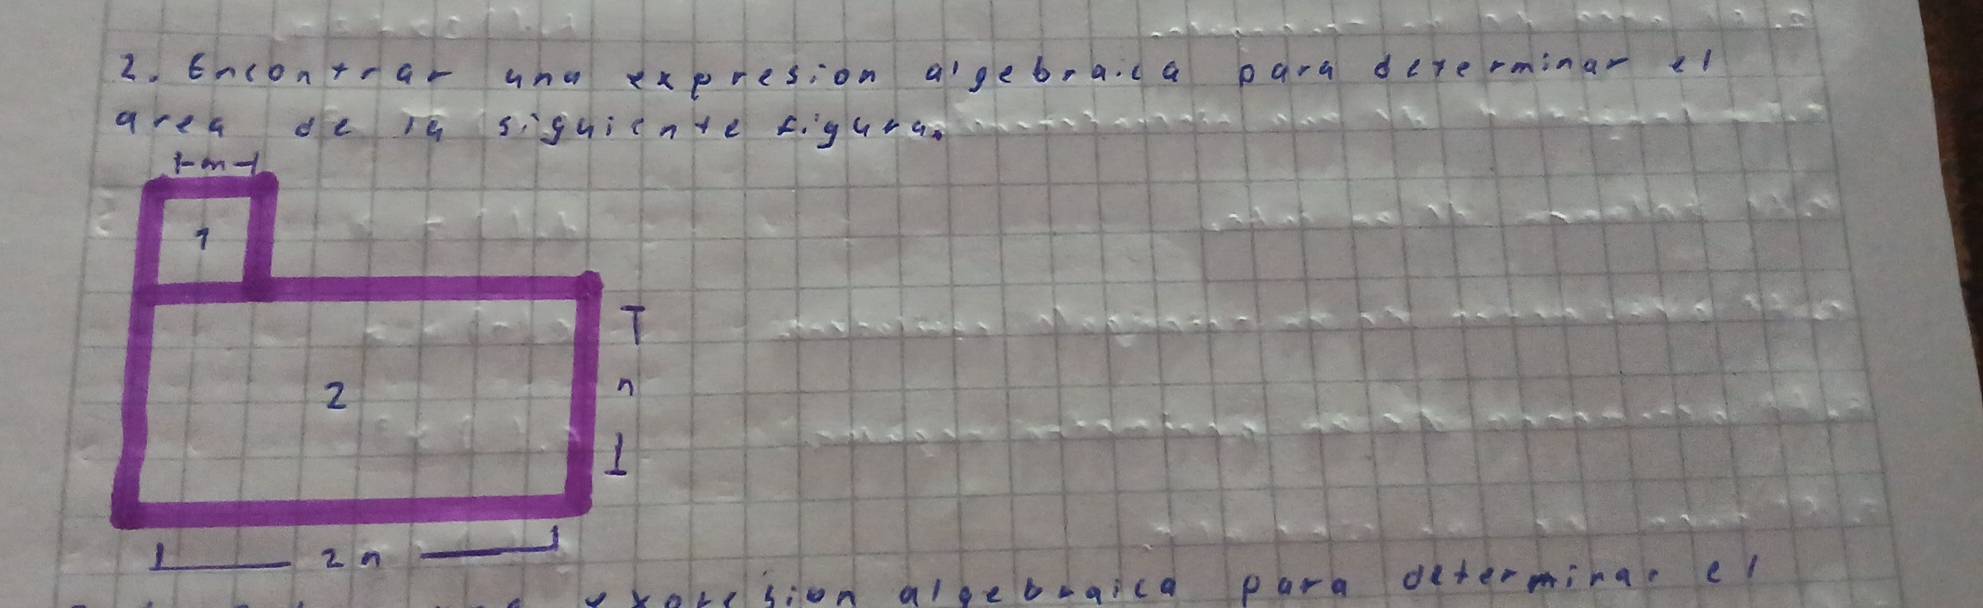 2. Encontrar una expresion algebraica para determinar el
area de la siguiente figura.
m
1
2
n
2n
expresion algebraica para determinar el